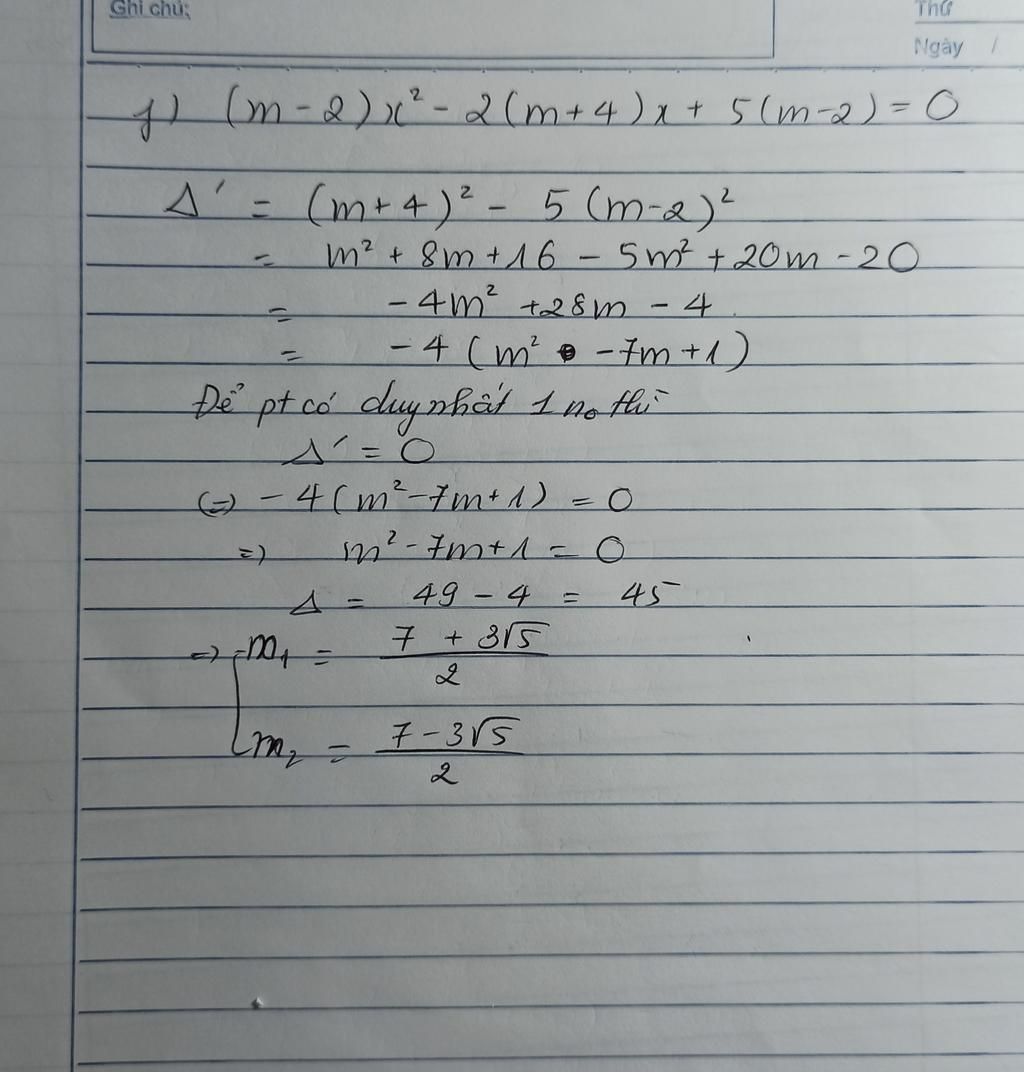 Ghi chú:
Thứ
Ngày /
f) (m-2)x² - 2(m+4)x + 5(m-2) = 0
Δ' = (m+4)² - 5(m-2)²
= m² + 8m + 16 - 5m² + 20m - 20
= -4m² + 28m - 4
= -4(m² - 7m + 1)
Để pt có duy nhất 1 no thì
Δ' = 0
(=) -4(m² - 7m + 1) = 0
=) m² - 7m + 1 = 0
Δ = 49 - 4 = 45
=) [ m₁ = (7 + 3√5)/2
m₂ = (7 - 3√5)/2